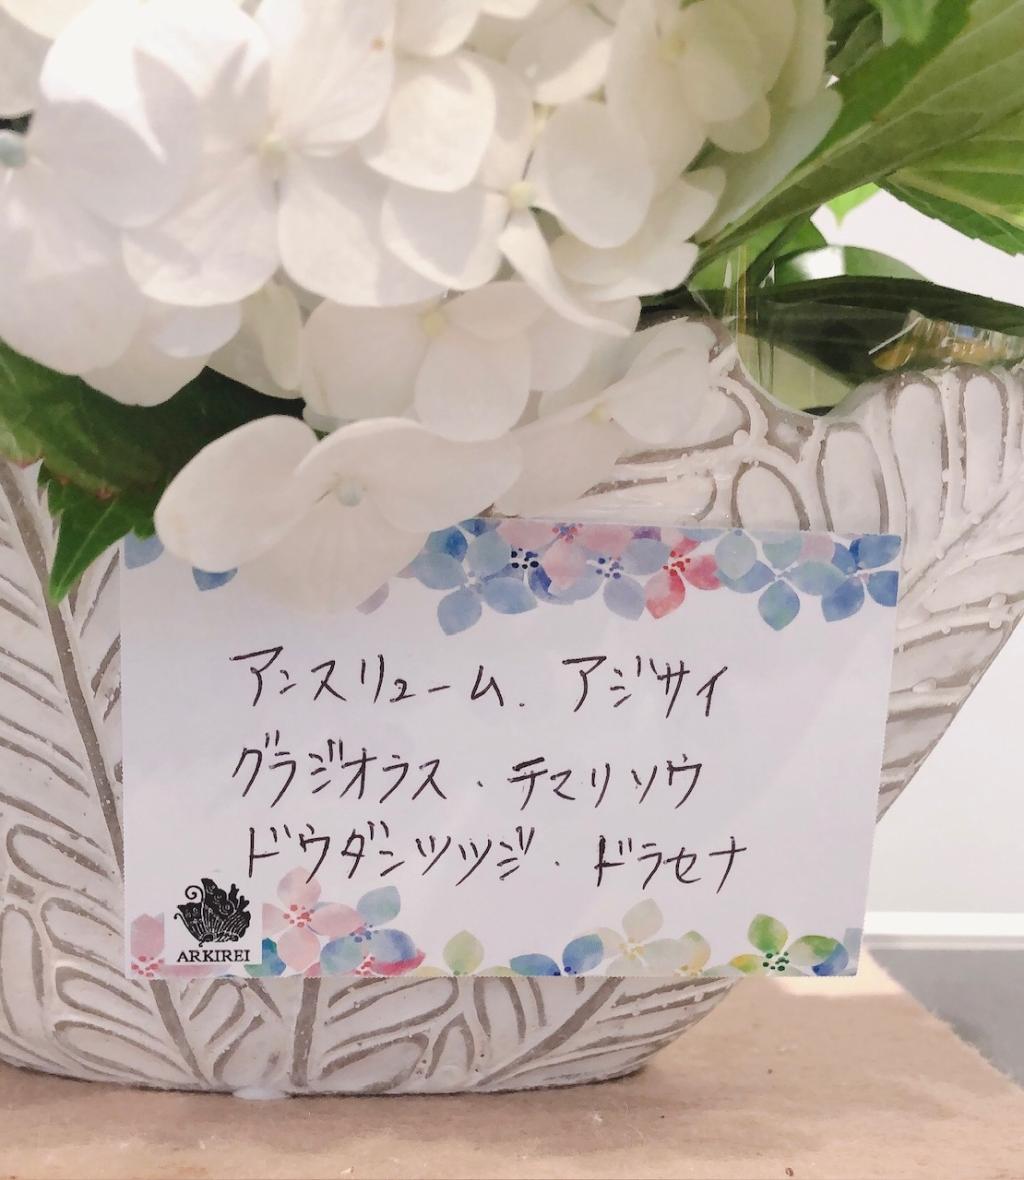 アンスリューム.アジサイ
グラジオラス・テマリソウ
ドウダンツツジ・ドラセナ
ARKIREI